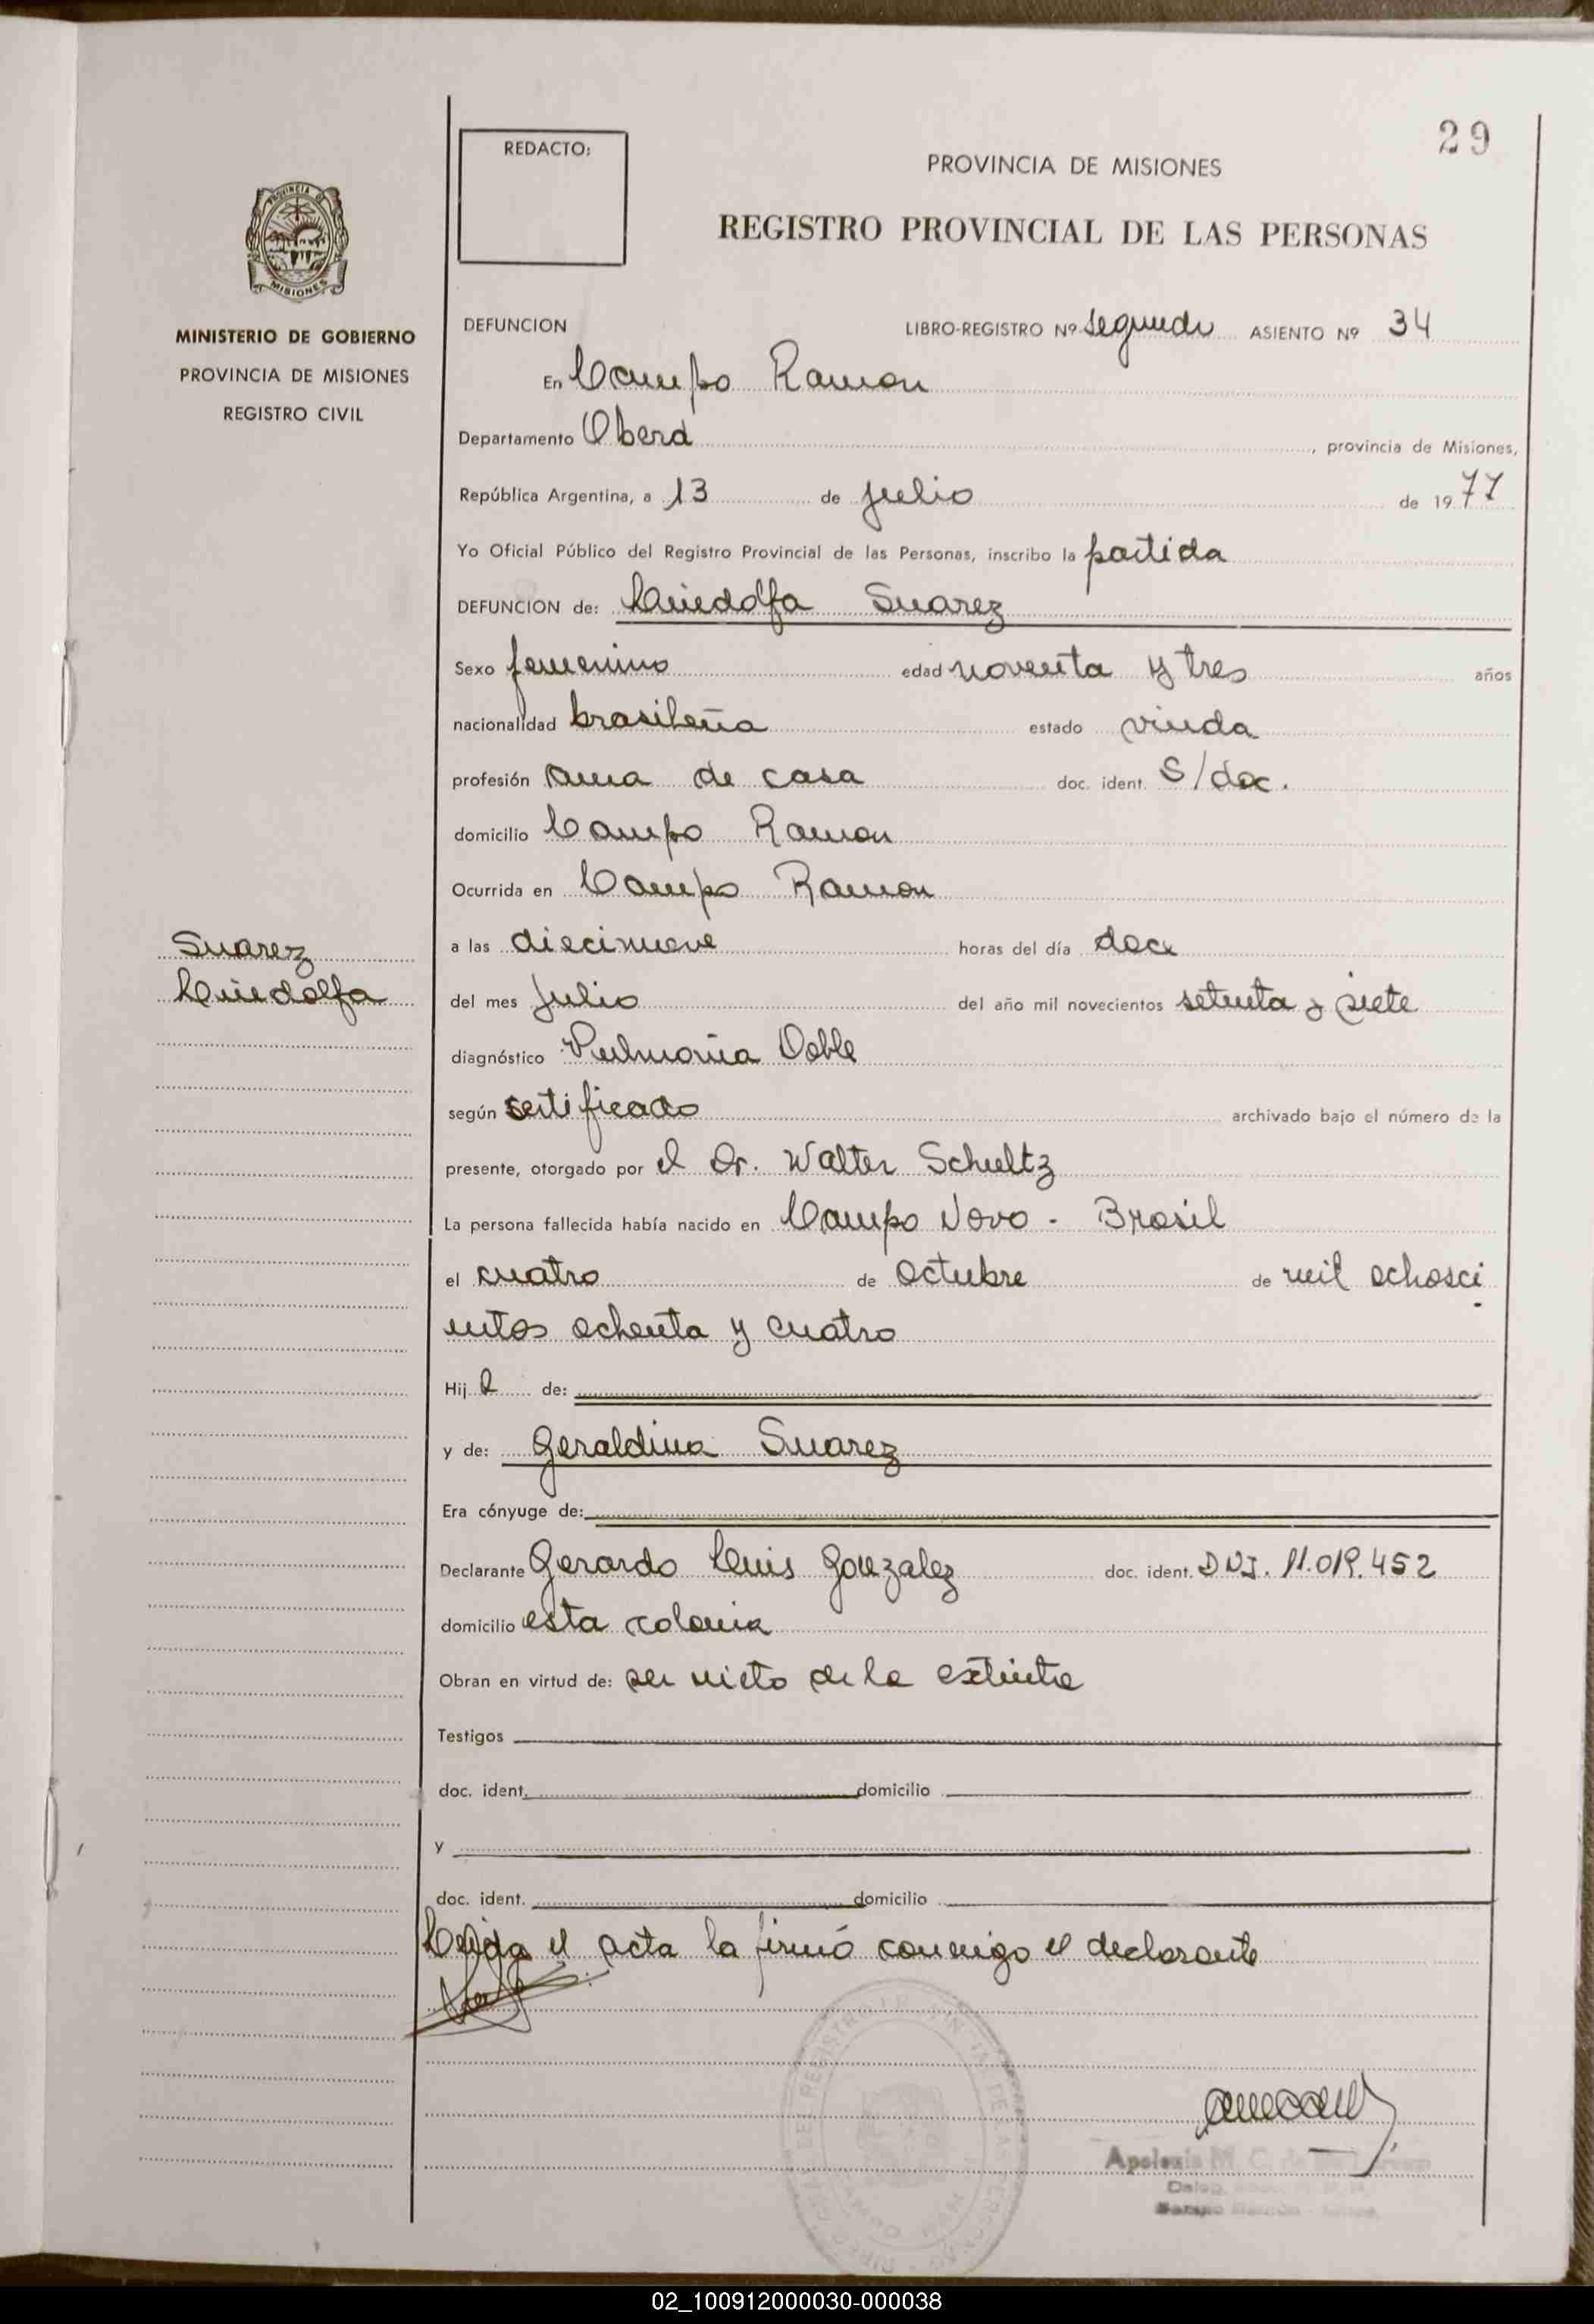 29
REDACTO:
PROVINCIA DE MISIONES
REGISTRO PROVINCIAL DE LAS PERSONAS
PROVINCIA DE
MISIONES
MINISTERIO DE GOBIERNO
PROVINCIA DE MISIONES
REGISTRO CIVIL
DEFUNCION LIBRO-REGISTRO Nº segundo ASIENTO Nº 34
En Campo Ramon
Departamento Oberá, provincia de Misiones,
República Argentina, a 13 de julio de 1977
Yo Oficial Público del Registro Provincial de las Personas, inscribo la partida
DEFUNCION de: Lindolfa Suarez
Sexo femenino edad noventa y tres años
nacionalidad brasileña estado viuda
profesión ama de casa doc. ident. S/doc.
domicilio Campo Ramon
Ocurrida en Campo Ramon
Suarez
Lindolfa
a las diecinueve horas del día doce
del mes Julio del año mil novecientos setenta y siete
diagnóstico Pulmonia Doble
según certificado archivado bajo el número de la
presente, otorgado por el Dr. Walter Schultz
La persona fallecida había nacido en Campo Novo - Brasil
el cuatro de Octubre de mil ochosci
entos ochenta y cuatro
Hija de:
y de: Geraldina Suarez
Era cónyuge de:
Declarante Gerardo Luis Gonzalez doc. ident. DNI. 11.019.452
domicilio esta colonia
Obran en virtud de: ser nieto de la extinta
Testigos
doc. ident. domicilio
y
doc. ident. domicilio
Leida el acta la firmó conmigo el declarante
02_100912000030-000038